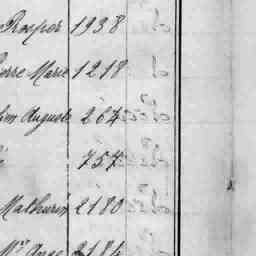 Prosper 1938
Pierre Marie 1218
Auguste 267
757
Mathurin 2180
Mr Ange 2184